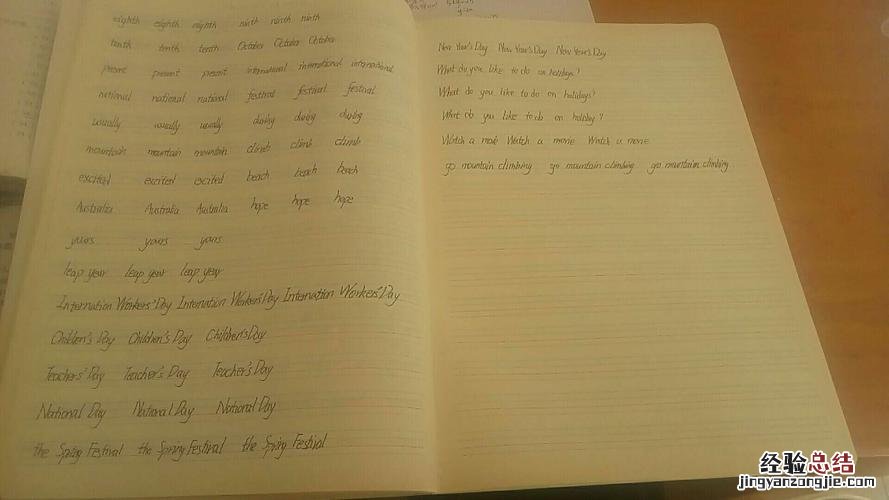 eighth eighth eighth ninth ninth ninth
tenth tenth tenth October October October
present present present international international international
national national national festival festival festival
usually usually usually during during during
mountain mountain mountain climb climb climb
excited excited excited beach beach beach
Australia Australia Australia hope hope hope
yours yours yours
leap year leap year leap year
Internation Workers' Day Internation Workers' Day Internation Workers' Day
Children's Day Children's Day Children's Day
Teachers' Day Teacher's Day Teacher's Day
National Day National Day National Day
the Spring Festival the Spring Festival the Spring Festival
New Year's Day New Year's Day New Year's Day
What do you like to do on holidays?
What do you like to do on holidays?
What do you like to do on holiday?
Watch a movie Watch a movie Watch a movie
go mountain climbing go mountain climbing go mountain climbing
经验总结
jingyanzongjie.com